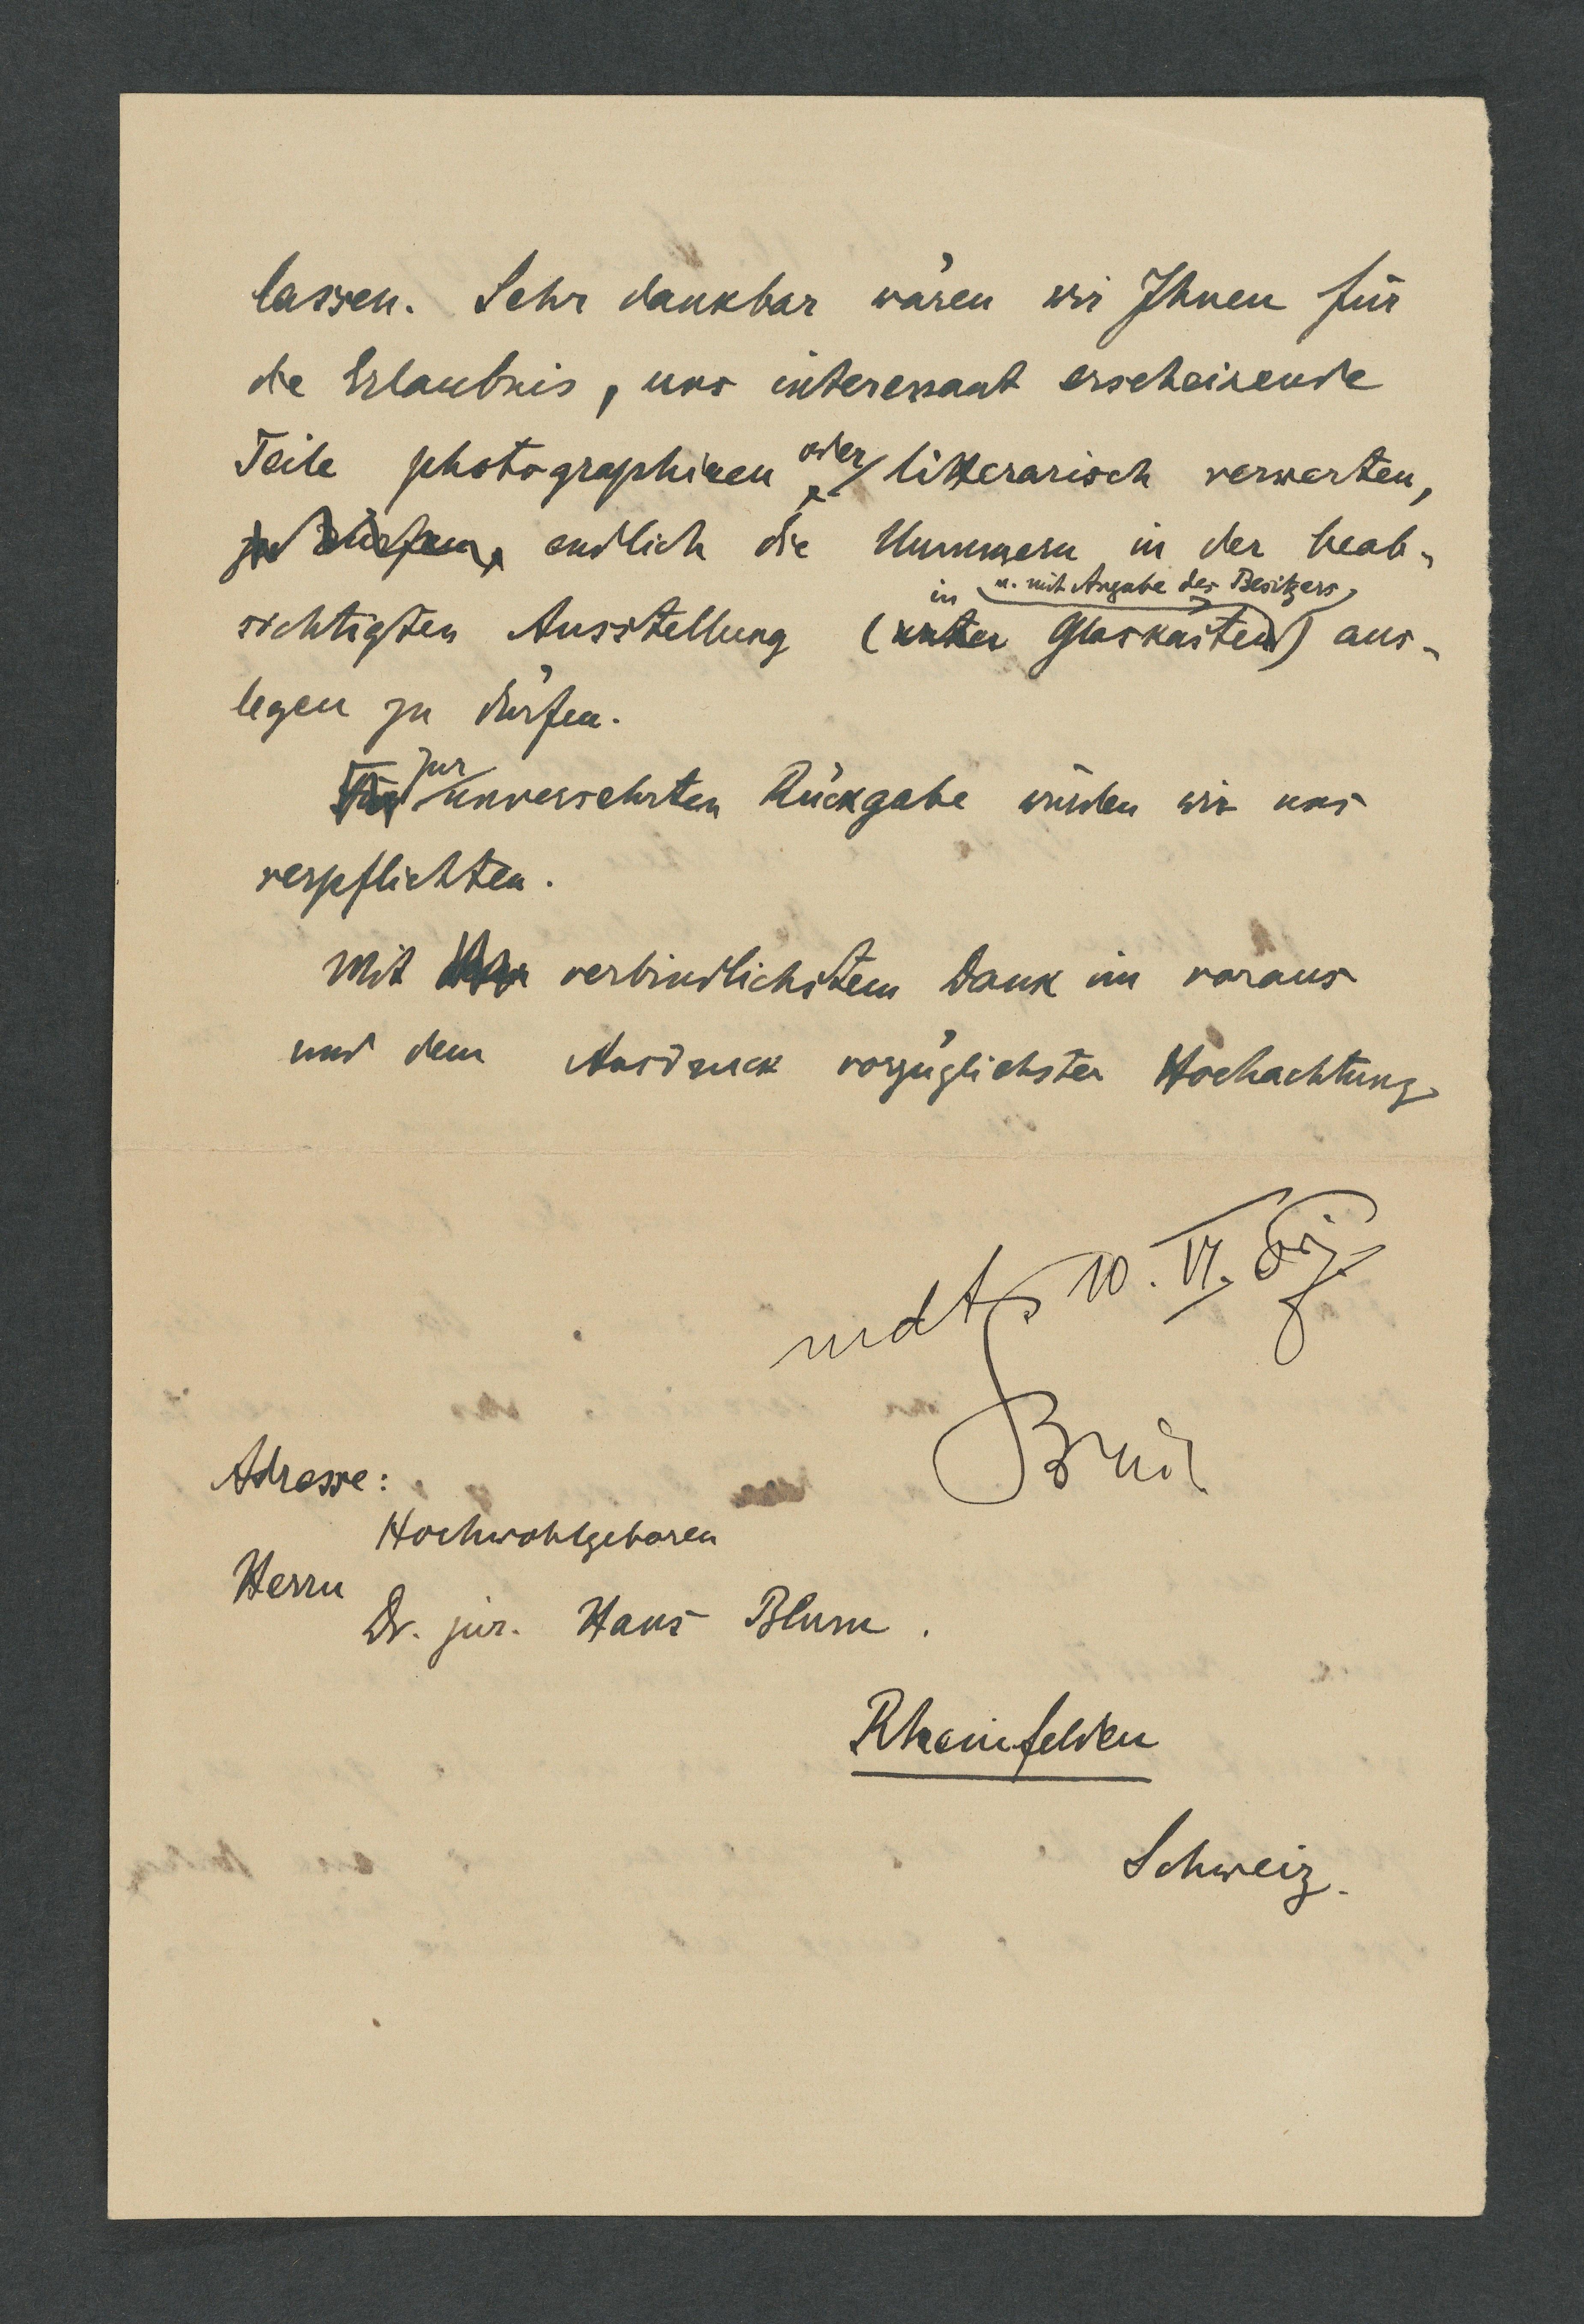 lassen. Sehr dankbar wären wir Ihnen für
die Erlaubnis, uns interessant erscheinende
Teile photographieren oder litterarisch verwerten,
zu dürfen, endlich die Nummern in der beab-
sichtigten Ausstellung (unter in Glaskästen u. mit Angabe des Besitzers) aus-
legen zu dürfen.
Für zur unversehrten Rückgabe würden wir uns
verpflichten.
Mit verbindlichstem Dank im voraus
und dem Ausdruck vorzüglichster Hochachtung
mdt 10. VI.
Adresse:
Hochwohlgeboren
Herrn
Dr. jur. Hans Blum.
Rheinfelden
Schweiz.